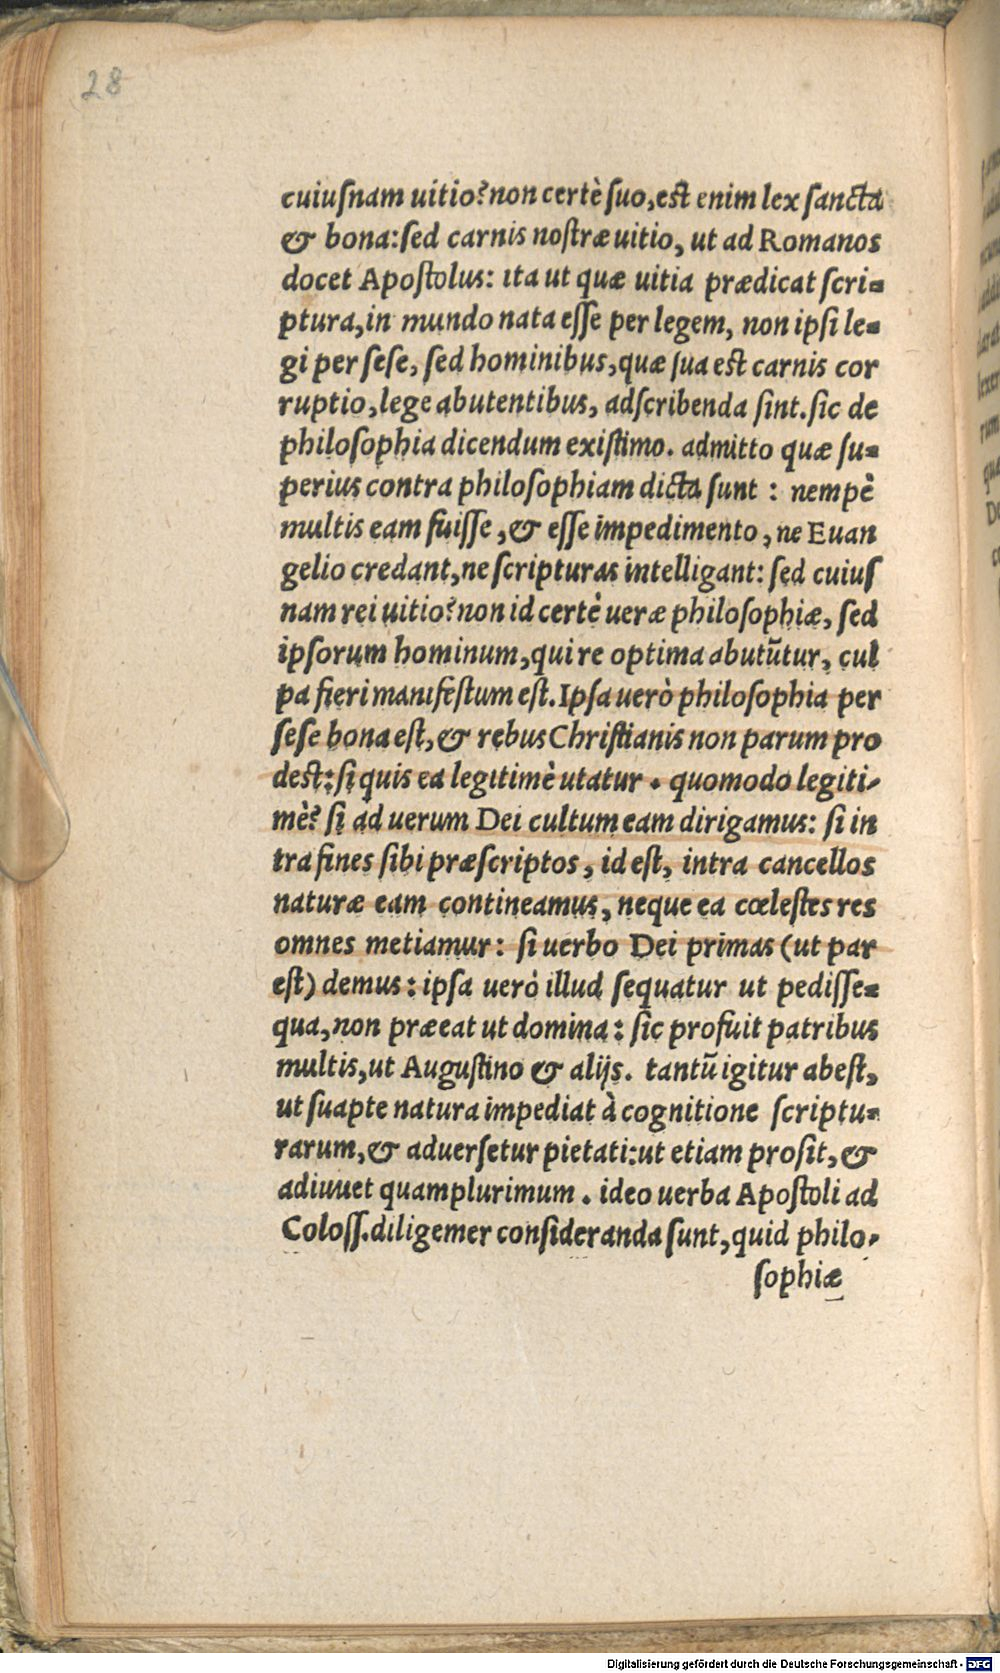 28
cuiuſnam uitio? non certè ſuo, eſt enim lex ſancta
& bona: ſed carnis noſtræ uitio, ut ad Romanos
docet Apoſtolus: ita ut quæ uitia prædicat ſcri-
ptura, in mundo nata eſſe per legem, non ipſi le-
gi per ſeſe, ſed hominibus, quæ ſua eſt carnis cor
ruptio, lege abutentibus, adſcribenda ſint. ſic de
philoſophia dicendum exiſtimo. admitto quæ ſu-
perius contra philoſophiam dicta ſunt : nempè
multis eam fuiſſe, & eſſe impedimento, ne Euan
gelio credant, ne ſcripturas intelligant: ſed cuiuſ
nam rei uitio? non id certè ueræ philoſophiæ, ſed
ipſorum hominum, qui re optima abutūtur, cul
pa fieri manifeſtum eſt. Ipſa uerò philoſophia per
ſeſe bona eſt, & rebus Chriſtianis non parum pro
deſt: ſi quis ea legitimè utatur . quomodo legiti-
mè? ſi ad uerum Dei cultum eam dirigamus: ſi in
tra fines ſibi præſcriptos, id eſt, intra cancellos
naturæ eam contineamus, neque ea cœleſtes res
omnes metiamur: ſi uerbo Dei primas (ut par
eſt) demus: ipſa uerò illud ſequatur ut pediſſe-
qua, non præeat ut domina: ſic profuit patribus
multis, ut Auguſtino & alijs. tantū igitur abeſt,
ut ſuapte natura impediat à cognitione ſcriptu-
rarum, & aduerſetur pietati: ut etiam proſit, &
adiuuet quamplurimum . ideo uerba Apoſtoli ad
Coloſſ. diligemer conſideranda ſunt, quid philo-
ſophiæ
Digitalisierung gefördert durch die Deutsche Forschungsgemeinschaft - DFG